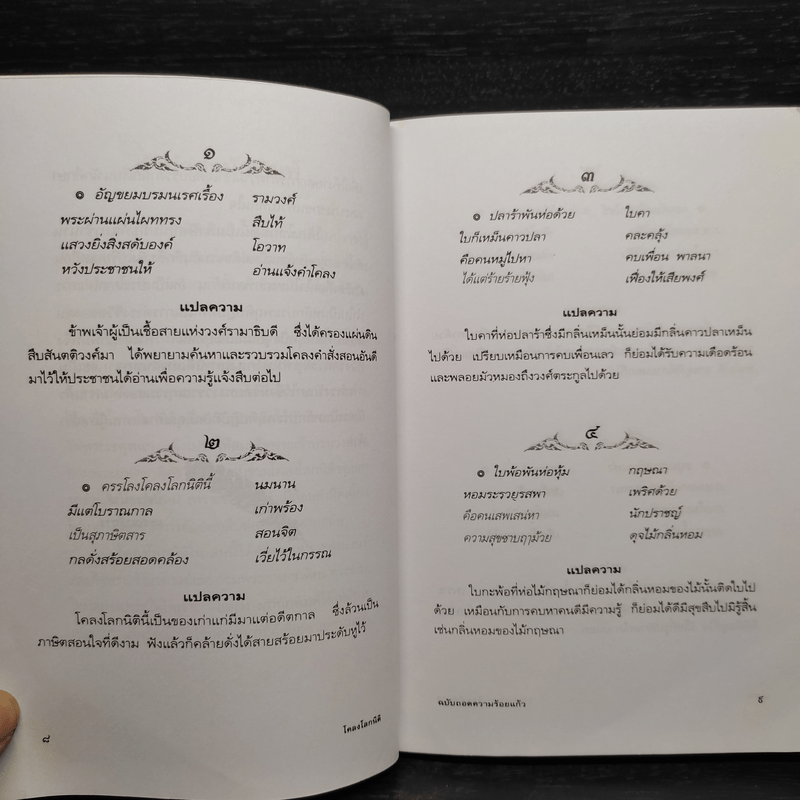 ๑
๏ อัญขยมบรมนเรศเรื้อง รามวงศ์
พระผ่านแผ่นไผททรง สืบไท้
แสวงยิ่งสิ่งสดับองค์ โอวาท
หวังประชาชนให้ อ่านแจ้งคำโคลง
แปลความ
ข้าพเจ้าผู้เป็นเชื้อสายแห่งวงศ์รามาธิบดี ซึ่งได้ครองแผ่นดิน
สืบสันตติวงศ์มา ได้พยายามค้นหาและรวบรวมโคลงคำสั่งสอนอันดี
มาไว้ให้ประชาชนได้อ่านเพื่อความรู้แจ้งสืบต่อไป
๒
๏ ครรโลงโคลงโลกนิตินี้ นมนาน
มีแต่โบราณกาล เก่าพร้อง
เป็นสุภาษิตสาร สอนจิต
กลดั่งสร้อยสอดคล้อง เวี่ยไว้ในกรรณ
แปลความ
โคลงโลกนิตินี้เป็นของเก่าแก่มีมาแต่อดีตกาล ซึ่งล้วนเป็น
ภาษิตสอนใจที่ดีงาม ฟังแล้วก็คล้ายดั่งได้สายสร้อยมาประดับหูไว้
๘
โคลงโลกนิติ
๓
๏ ปลาร้าพันห่อด้วย ใบคา
ใบก็เหม็นคาวปลา คละคลุ้ง
คือคนหมู่ไปหา คบเพื่อน พาลนา
ได้แต่ร้ายร้ายฟุ้ง เฟื่องให้เสียพงศ์
แปลความ
ใบคาที่ห่อปลาร้าซึ่งมีกลิ่นเหม็นนั้นย่อมมีกลิ่นคาวปลาเหม็น
ไปด้วย เปรียบเหมือนการคบเพื่อนเลว ก็ย่อมได้รับความเดือดร้อน
และพลอยมัวหมองถึงวงศ์ตระกูลไปด้วย
๔
๏ ใบพ้อพันห่อหุ้ม กฤษณา
หอมระรวยรสพา เพริศด้วย
คือคนเสพเสน่หา นักปราชญ์
ความสุขซาบฤๅม้วย ดุจไม้กลิ่นหอม
แปลความ
ใบกะพ้อที่ห่อไม้กฤษณาก็ย่อมได้กลิ่นหอมของไม้นั้นติดใบไป
ด้วย เหมือนกับการคบหาคนดีมีความรู้ ก็ย่อมได้ดีมีสุขสืบไปมิรู้สิ้น
เช่นกลิ่นหอมของไม้กฤษณา
ฉบับถอดความร้อยแก้ว
๙